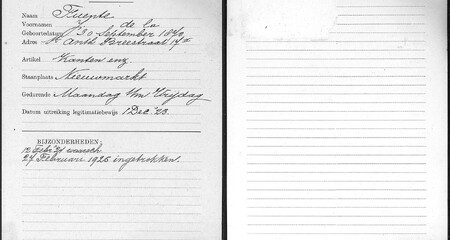 Naam Fuente
Voornamen de La
Geboortedatum 30 September
Adres St Anth. Breestraat 17
Artikel Kanten enz
Staanplaats Nieuwmarkt
Gedurende Maandag t/m Vrijdag
Datum uitreiking legitimatiebewijs 1 Dec. '23.
BIJZONDERHEDEN:
12 Febr. waarsch.
27 Februari 1926 ingetrokken.